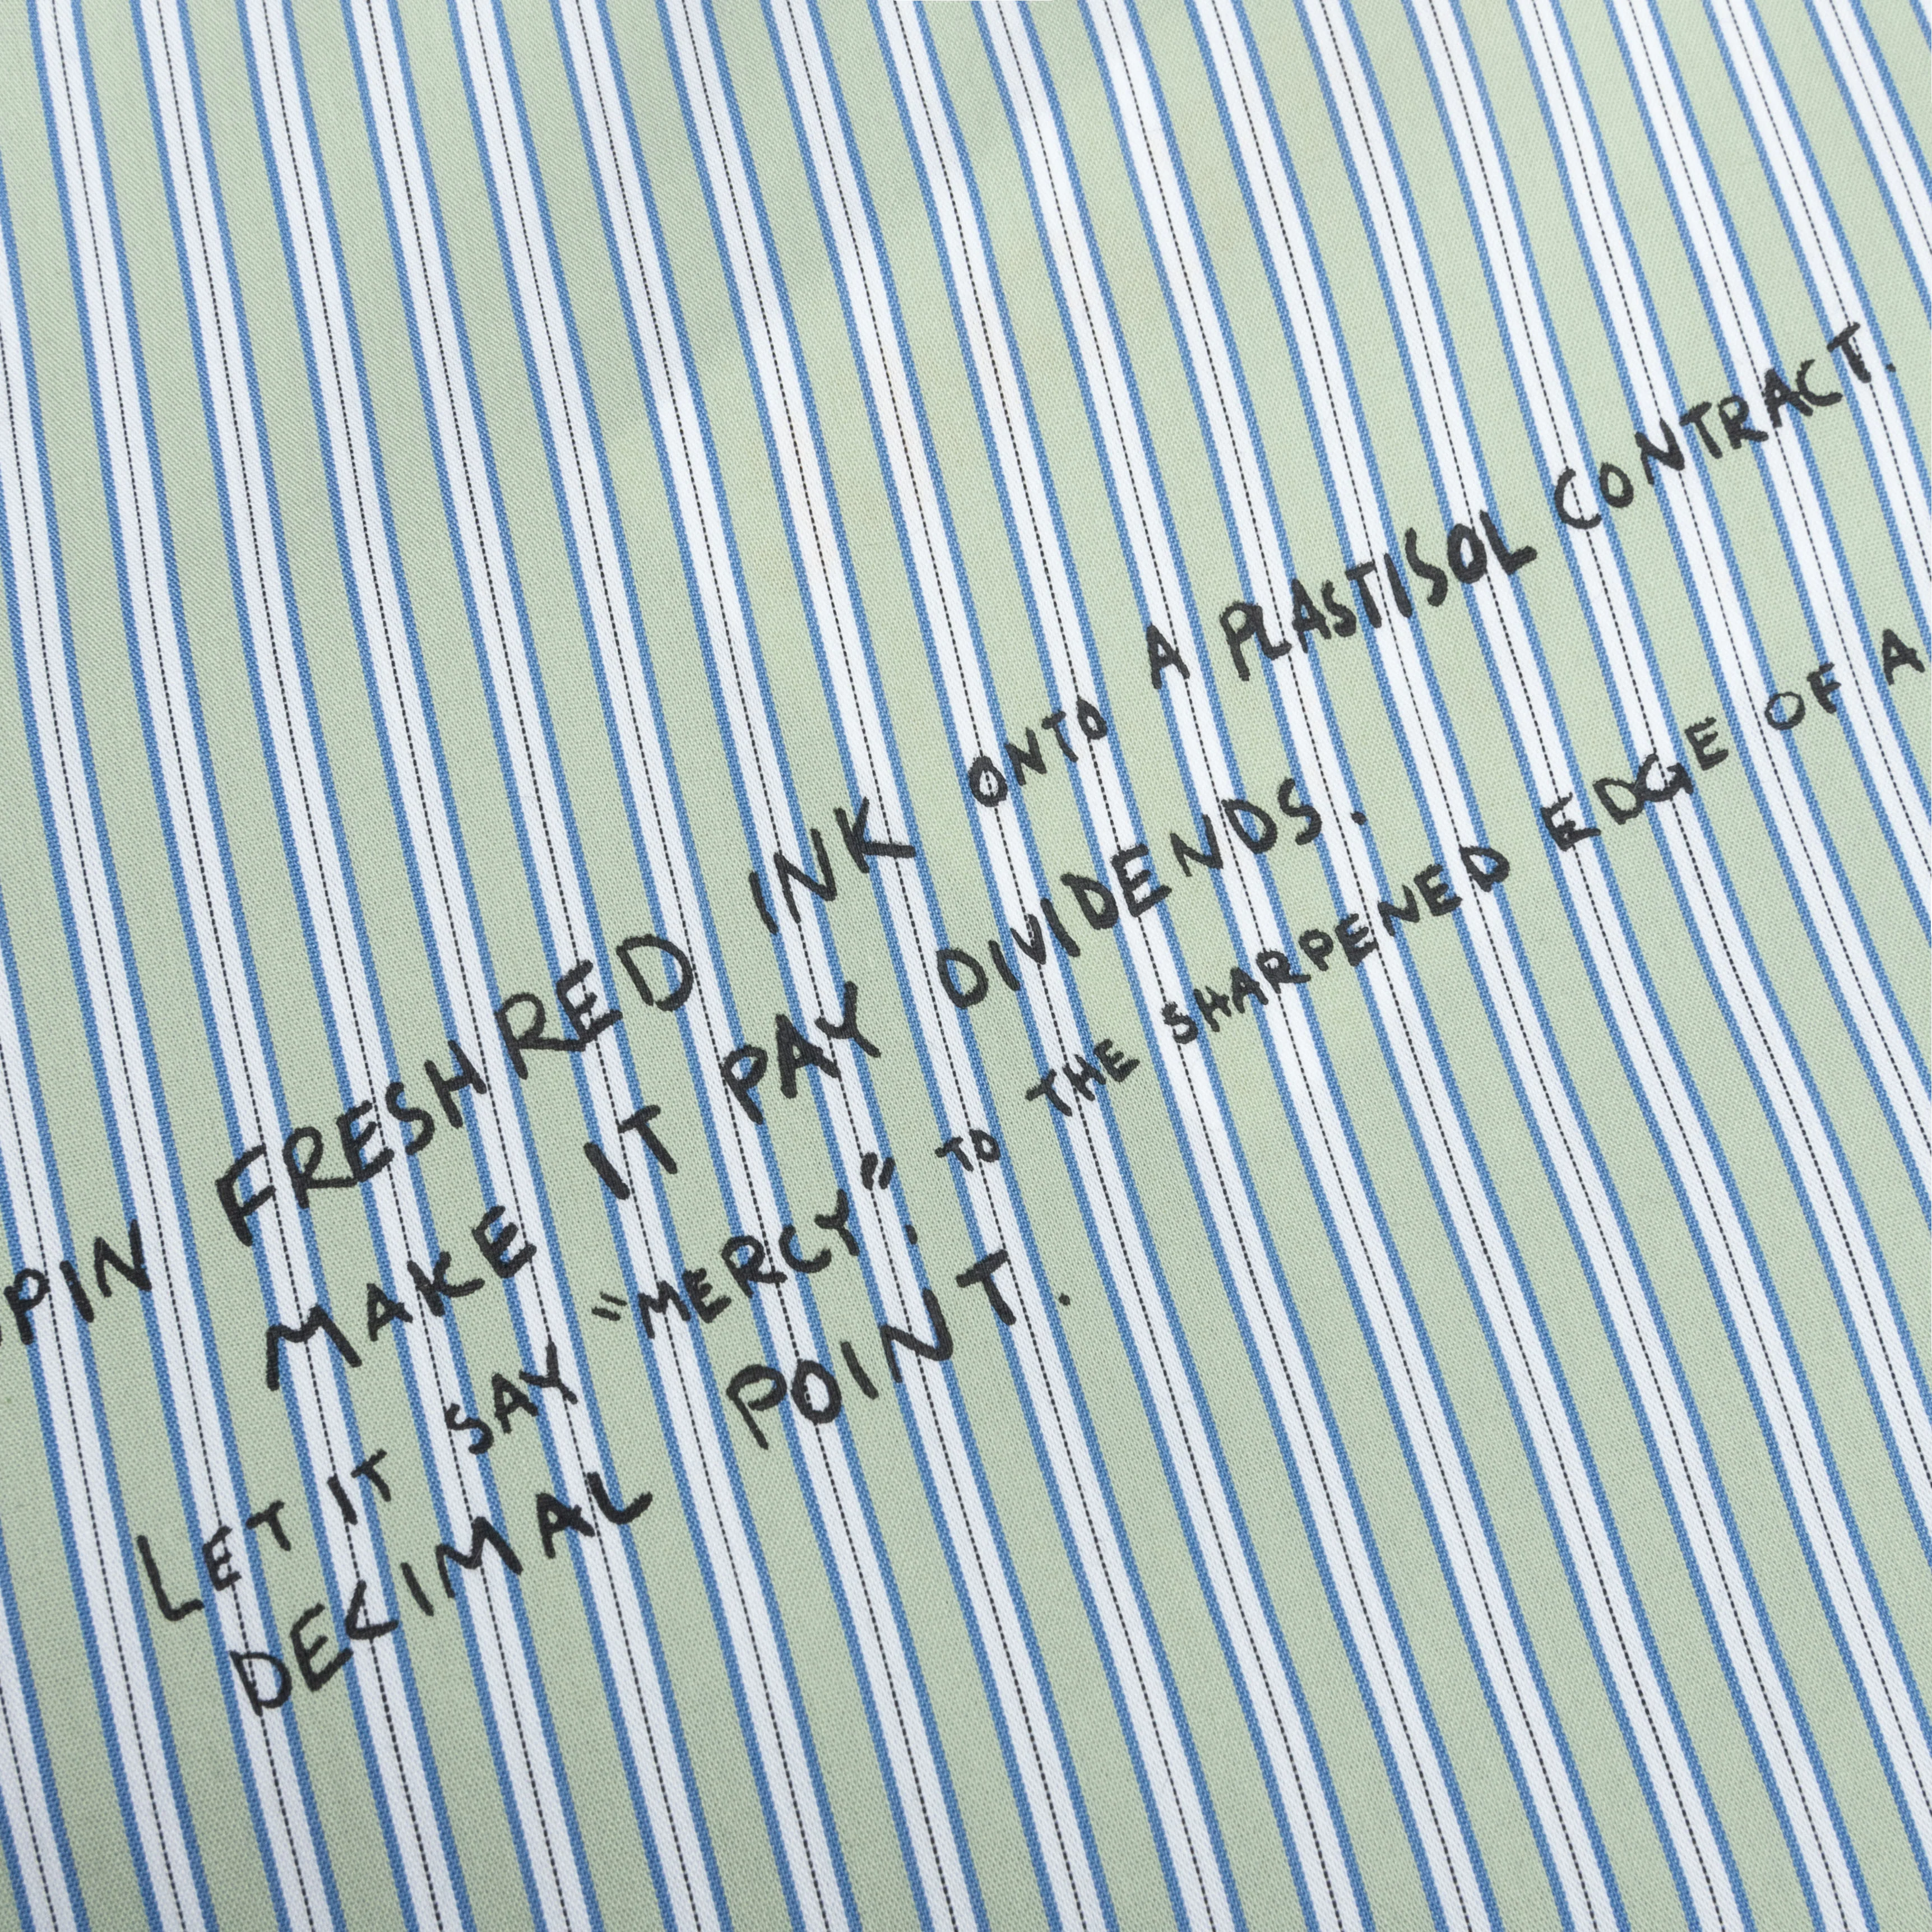 PIN FRESH RED INK ONTO A PLASTISOL CONTRACT.
MAKE IT PAY DIVIDENDS.
LET IT SAY "MERCY". TO THE SHARPENED EDGE OF A
DECIMAL POINT.